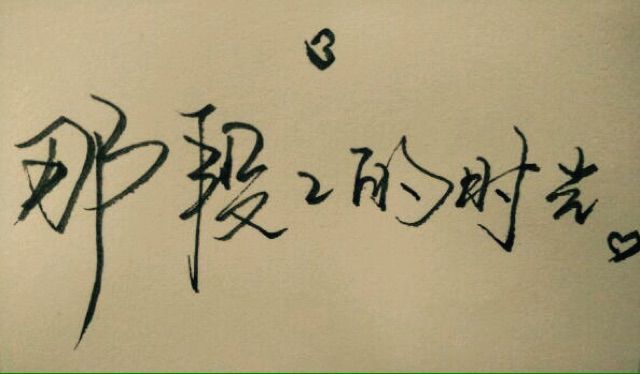 那段2的时光